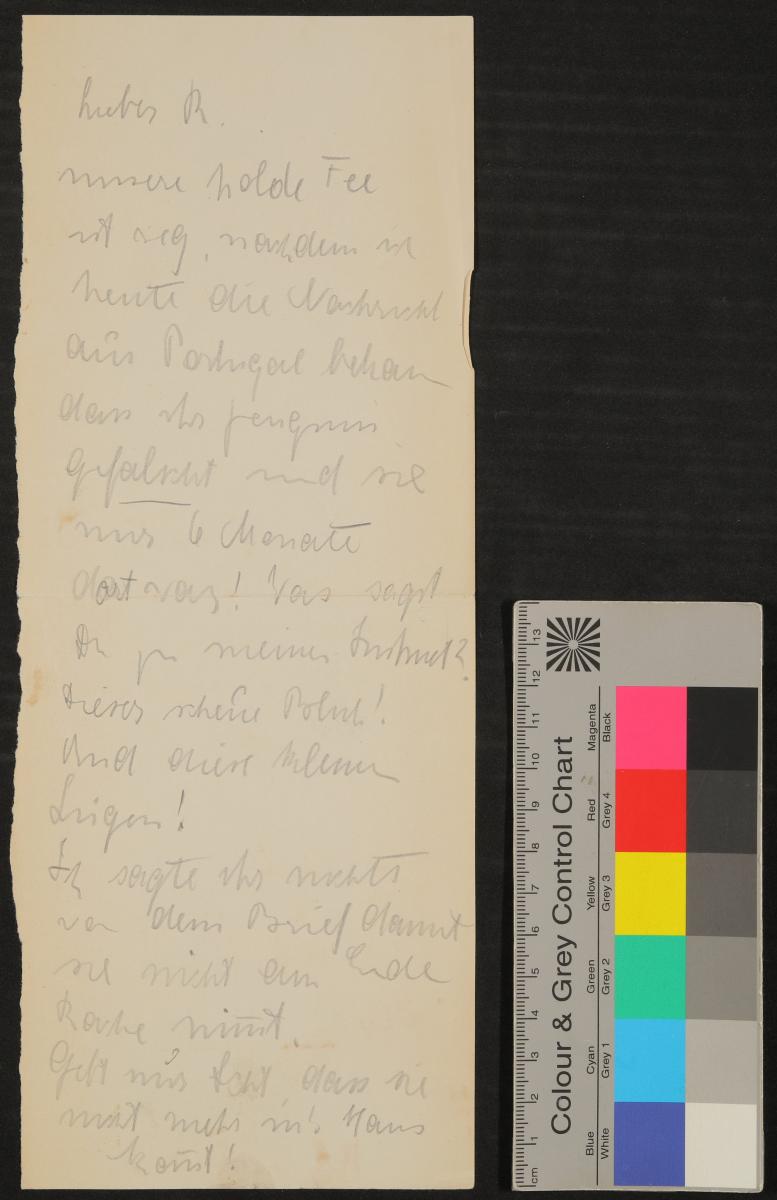 Lieber R.
unsere holde Fee
ist weg, nachdem ich
heute die Nachricht
aus Portugal bekam
dass ihr Zeugnis
gefälscht und sie
nur 6 Monate
dort war! Was sagst
Du zu meinem Instinct?
Dieser scheue Blick!
Und diese kleinen
Lügen!
Ich sagte ihr nichts
von dem Brief damit
sie nicht am Ende
Rache nimmt.
Gebt nur Acht, dass sie
nicht mehr in's Haus
kommt!
Colour & Grey Control Chart
Blue Cyan Green Yellow Red Magenta
White Grey 1 Grey 2 Grey 3 Grey 4 Black
cm 1 2 3 4 5 6 7 8 9 10 11 12 13